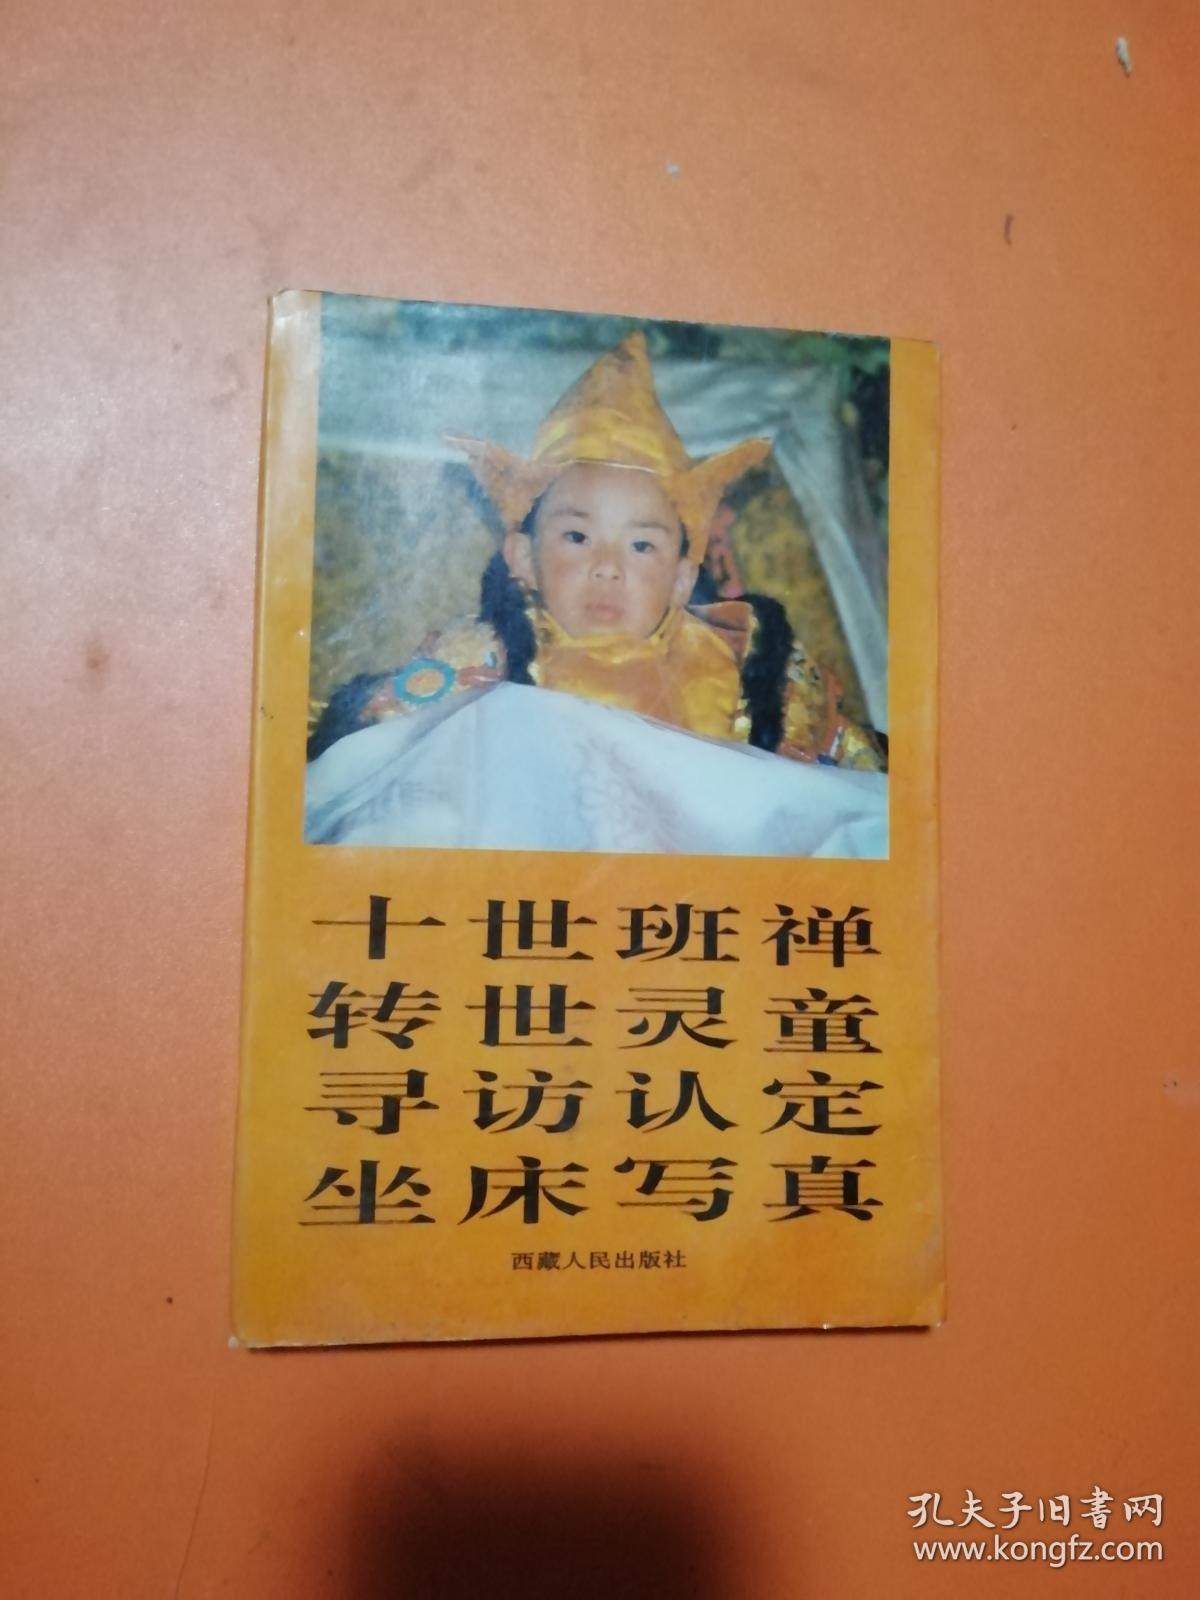 十世班禅
转世灵童
寻访认定
坐床写真
西藏人民出版社
孔夫子旧书网
www.kongfz.com